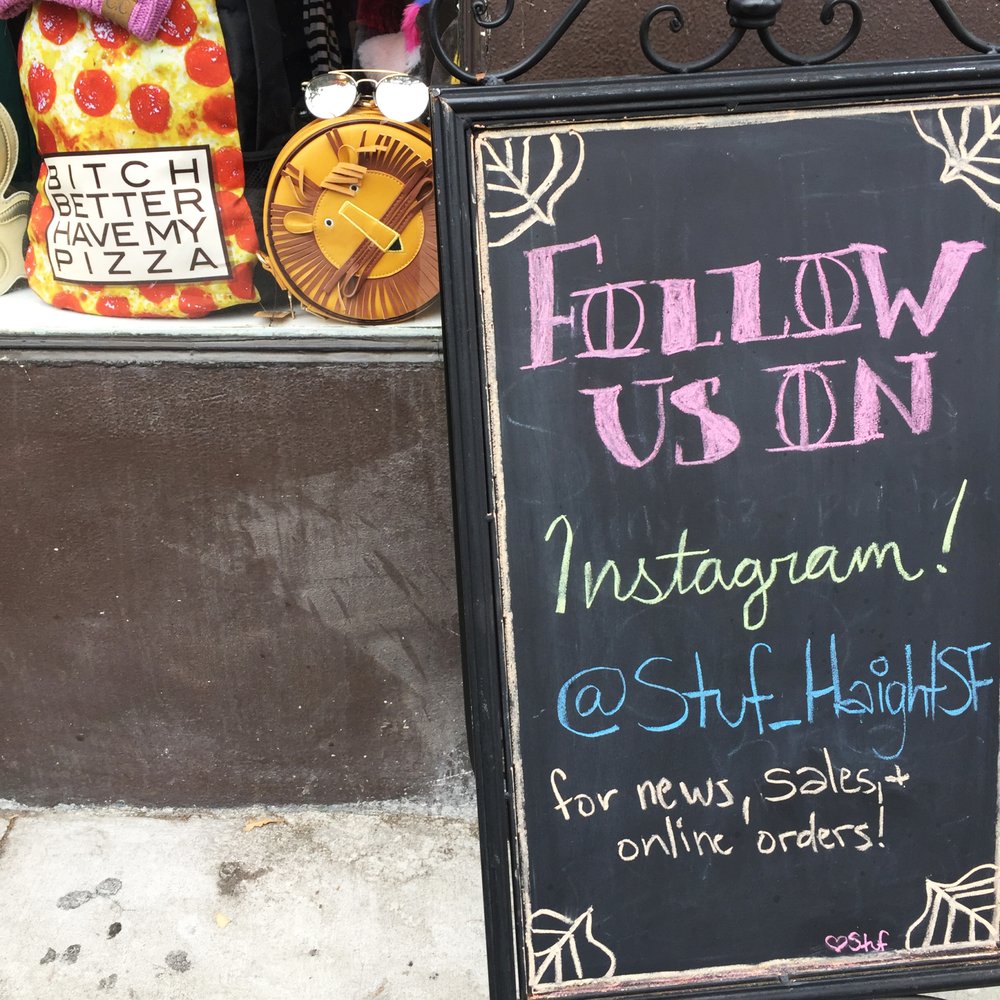 BITCH
BETTER
HAVE MY
PIZZA
FOLLOW
US ON
Instagram!
@Stuf_HaightSF
for news, sales, +
online orders!
♡Stuf